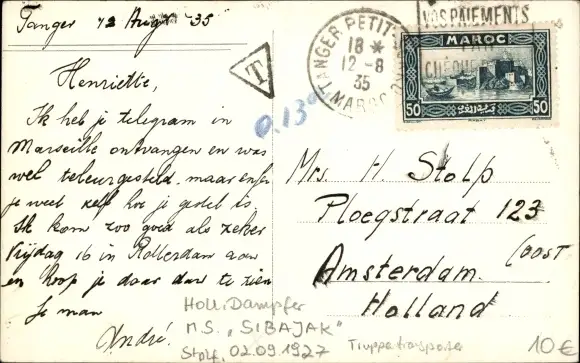 Tanger 12 Aug '35
Henriette,
Ik heb je telegram in
Marseille ontvangen en was
wel teleurgesteld, maar enfin
je weet zelf hoe je gestel is.
Ik kom zoo goed als zeker
Vrijdag 16 in Rotterdam aan
en hoop je daar dan te zien
Je man
André.
T
0.13
TANGER PETIT
18 *
12-8
35
MAROC
VOS PAIEMENTS
PAR
MAROC
50 50
Mrs. H. Stolp
Ploegstraat 123
Amsterdam. (OOST
Holland
Holl. Dampfer
M.S. „SIBAJAK"
Stolp, 02.09.1927
10€